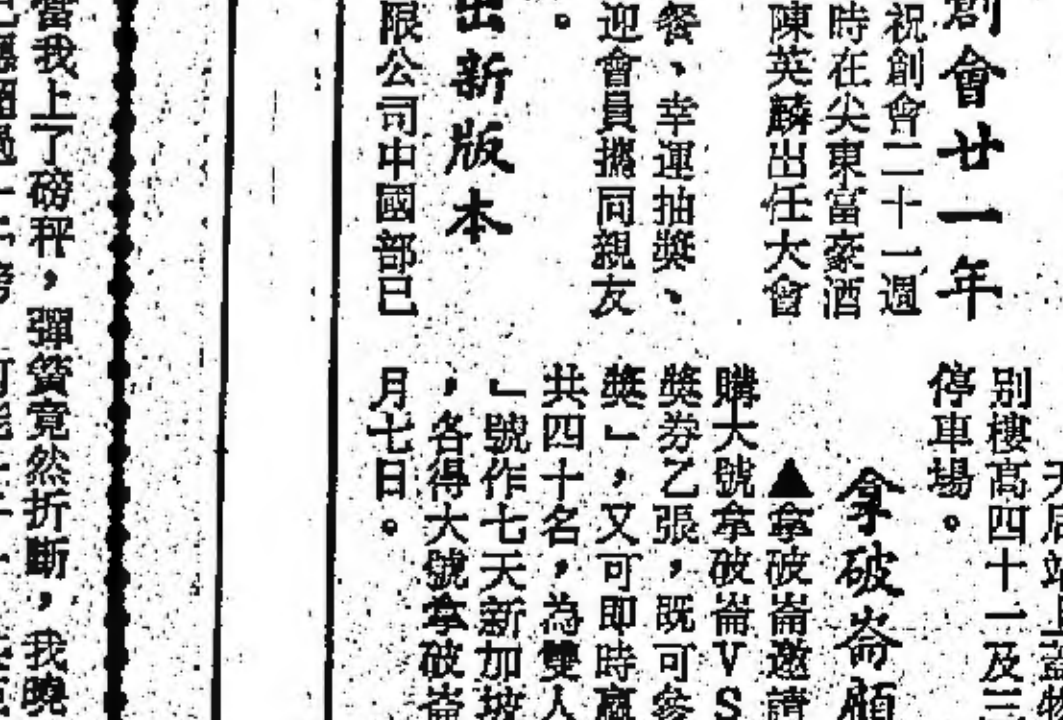 創會廿一年
祝創會二十一週
時在尖東富豪酒
陳英麟出任大會
餐、幸運抽獎、
迎會員攜同親友
。
出新版本
限公司中國部已
天后站上蓋物
别樓高四十一及三
停車場。
拿破崙願
▲拿破崙邀請
購大號拿破崙VS
獎券乙張，既可參
獎」，又可即時贏
共四十名，為雙人
」號作七天新加坡
，各得大號拿破崙
月七日。
當我上了磅秤，彈簧竟然折斷，我曉